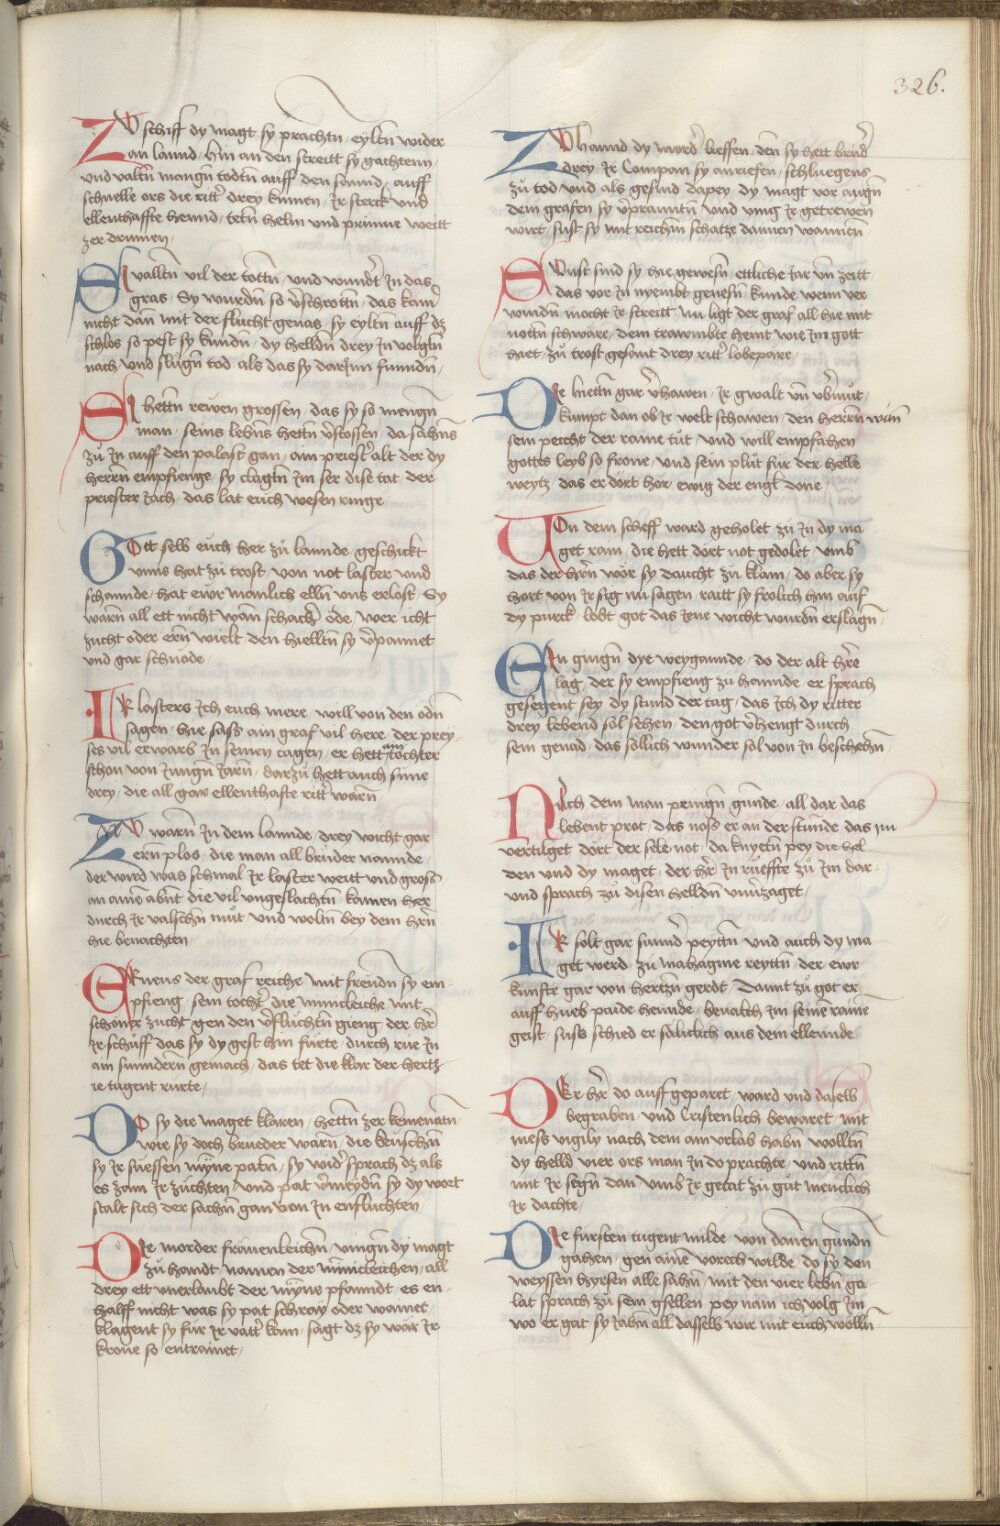 326.
ZW schiff dy magt sy prachtn / eyltn wider
an lannd / hin an den streitt sy gachtenn /
und valtn mangn todtn auff den sannd / auff
schnelle ors die ritt' drey kumen / Ir sterck und
ellenthaffte hennd / tetn helm und prünne weitt
zer drumen /
SI valltn vil der tottn / und wundt' In das
gras / Sy wurdn so v'schrottn / das kain'
nicht dan mit der flucht genas / sy eyltn auff dz
schlos so pest sy kundn / dy helldn drey In volgtn
nach / und slugn tod als das sy darInn funndn /
SI hettn rewen grossen / das sy so mengn
man / seins lebns hettn v'stossen / da sahns
zů In auff den palast gan / ain priest' alt der dy
herrn empfienge / sy clagtn Im ser dise tat der
priester Iach / das lat euch wesen ringe
GOtt selb euch her zů lannde / geschickt
unns hat zů trost / von not laster und
schannde / hat ewr manlich elln uns erlost / Sy
warn all ett nicht wan schach' öde / wer icht
zucht oder ern wielt den hielltn sy v'pannet
und gar schnöde /
IR lasters Ich euch mere / will von den ödn
sagen / hie sass ain graf vil here / der prey
ses vil erwarb In seinen tagen / er hett ain tochter
schon von Jungn Jarn / darzů hett auch sune
drey / die all gar ellenthafte ritt' warn
NW warn In dem lannde / drey wicht gar
ern plos / die man all brüder nannde /
der wird was schmal Ir laster weitt und gross
an ainē abnt die vil ungeslachtn / kamen her
durch Ir valschn můt / und woltn bey dem hrn
hie benachten /
ERwens der graf reiche / mit freudn sy em
pfieng / sein tocht' die minicleiche / mit
schöner zucht gen den v'fluchtn gieng / der hr'
Ir schuff das sy dy gest hin fürte / durch rue In
ain sunndern gemach / das tet die klar der hertz
ie tugent rürte /
DO sy die maget klaren / hettn zer kemenatn
wie sy doch brueder warn / die keuschn
sy Ir suessen mÿne patn / sy wid' sprach dz als
es zam Ir züchten / und pat v'meydn sy dy wort
stalt sich der sachn gan von In enfluchten /
DIe morder frauenleichn / viengn dy magt
zů handt / namen der minicleichen / all
drey ett unerlaubt der mÿne pfanndt / es en
halff nicht was sy pat schray oder wainet /
klagent sy für Ir vatt' kam / sagt dz sy wär Ir
krone so entrainet /
ZW hannd dy mord' lieffen / den sy hett brüd'
drey Ir Compani sy anriefen / schluegens
zů tod und als gesind dapey / dy magt vor augn
dem grafen sy v'pranntn / und ving Ir getrewen
wirt / sust sy mit reichm schatze dannen wanntn
SUnst sind sy hie gewesn / ettliche Iar un zeitt
das vor In nyembt genesn / kunde wenn ver
windn mocht Ir streitt / nu ligt der graf all hie mit
nottn schwäre / dem trawmbte heint wie Im gott
hiet / zů trost gesant drey ritt' lobepäre
DIe hettn gar v'hawen / Ir gwalt un üb'mut /
kumpt dan ob Ir welt schawen / den herrn wan
sein peicht der raine tůt / und will empfahen
gottes leyb so frone / und sein plůt für der helle
weytz / das er dort hör ewig der engl done /
VOn dem scheff ward geholet / zů In dy ma
get rain / die hett dort not gedolet / umb
das der hrn wör sy daucht zu klain / do aber sy
hort von Ir sig nu sagen / raitt sy frölich hin auf
dy purck / lobt got das Iene wicht wurdn erslagn /
SIn giengn dye weygannde / do der alt hre
lag / der sy empfieng zu hannde / er sprach
gesegent sey dy stund der tag / das Ich dy ritter
drey lebend sol sehen / den got v'hengt durch
sein genad / das söllich wunder sol von In beschehn
NAch dem man pringn gunde / all dar das
lebent prot / das noss er an der stunde / das im
vertilget dort der sele not / da knyetn pey die hel
den und dy maget / der hr' In rüeffte zů Im dar
und sprach zů disen helldn unv'zaget /
IR solt gar sunnd' peyttn / und auch dy ma
get werd / zů mabagine reyttn / der ewr
kunfte gar von hertzn gerdt / Damit zů got er
auff hueb paide hennde / bevalch Im seinē rainē
geist / suss schied er sälicklich aus dem ellennde
DEr hr' do auff geparet / ward und daselb
begraben / und Cristenlich bewaret / mit
mess vigily nach dem ain urlab habn wolltn
dy helld / vier ors man In do prachte / und rittn
mit Ir segn dan umb Ir getat zů gůt menclich
Ir dachte /
DIe fürsten tugent milde / von dannen gundn
gahen / gen ainē vorech wilde / do sy den
weyssen hyrsen alle sahn / mit den vier lebn ga
lat sprach zů sein gsellen / pey nam ich volg Im
wo er gat / sy Iahn all dasselb wir mit euch wölln